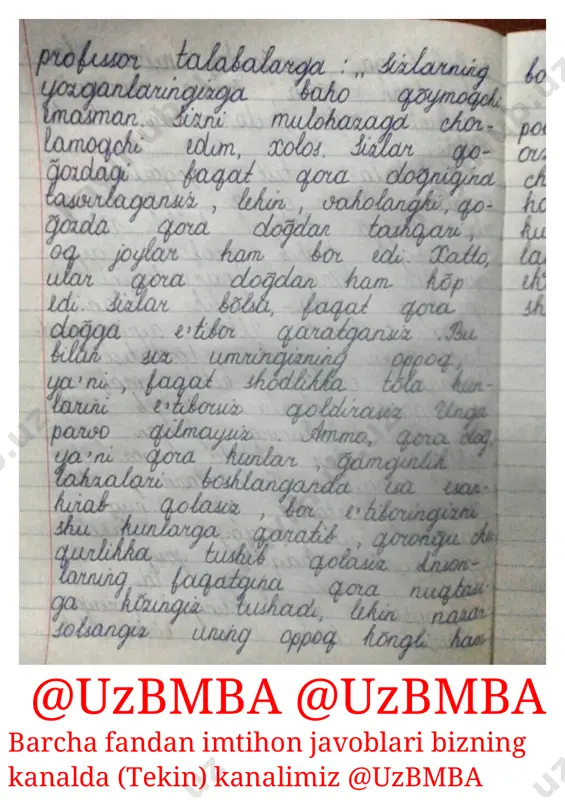 professor talabalarga: ,, Sizlarning
yozganlaringizga baho qōymoqchi
emasman. Sizni mulohazaga chor-
lamoqchi edim, xolos. Sizlar qo-
ğozdagi faqat qora doğnigina
tasvirlagansiz, lekin, vaholangki, qo-
ğozda qora doğdan tashqari,
oq joylar ham bor edi. Xatto,
ular qora doğdan ham kōp
edi. Sizlar bōlsa, faqat qora
doğga e'tibor qaratgansiz. Bu
bilan siz umringizning oppoq,
ya'ni, faqat shodlikka tola kun-
larini e'tiborsiz qoldirasiz. Unga
parvo qilmaysiz. Ammo, qora doğ,
ya'ni qora kunlar, ğamginlik
lahzalari boshlanganda esan-
kirab qolasiz, bor e'tiboringizni
shu kunlarga qaratib, qorongu chu
qurlikka tushib qolasiz. Inson-
larning faqatgina qora nuqtasi-
ga kōzingiz tushadi, lekin nazar
solsangiz uning oppoq kōngli ham
bo
or
ch
la
sh
@UzBMBA @UzBMBA
Barcha fandan imtihon javoblari bizning
kanalda (Tekin) kanalimiz @UzBMBA